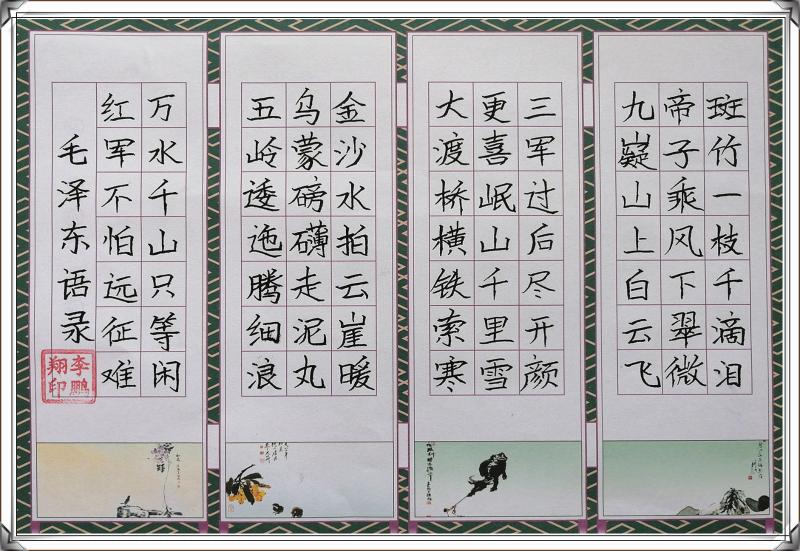 毛泽东语录
李鹏翔印
红军不怕远征难
万水千山只等闲
五岭逶迤腾细浪
乌蒙磅礴走泥丸
金沙水拍云崖暖
大渡桥横铁索寒
更喜岷山千里雪
三军过后尽开颜
九嶷山上白云飞
帝子乘风下翠微
斑竹一枝千滴泪